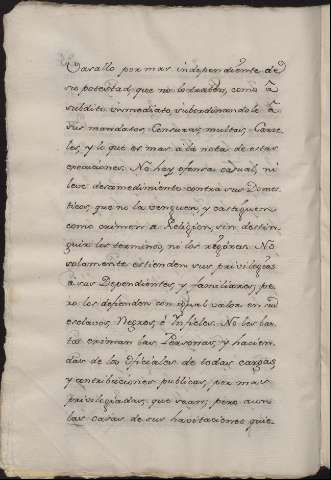 Vasallo por mas independiente de
su potestad, que no lo traten, como â
subdito immediato, subordinandole â
sus mandatos, Censuras, multas, Carce
les, y lo que es mas â la nota de estas
execuciones. No hay ofensa casual, ni
leve desmedimiento contra sus Domes
ticos, que no la venguen, y castiguen
como crimen â Religion, sin distin
guir los terminos, no los
solamente estienden sus privilegios
a sus Dependientes, y familiares, pe
ro los defienden con igual valor en sus
esclavos, Negros, é Infieles. No les bas
ta eximan las Personas, y hacien
das de los oficiales de todas cargas,
y contribuciones publicas, por mas
privilegiadas que sean; pero aun
las casas de sus havitaciones quie